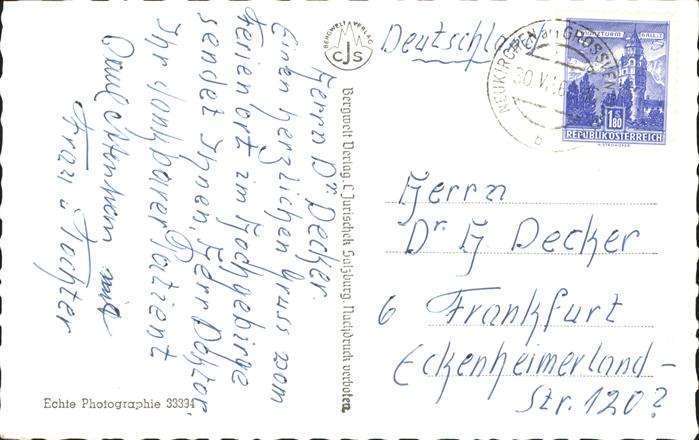 Herrn Dr Decker.
Einen herzlichen Gruss vom
Ferienort im Hochgebirge
sendet Ihnen, Herr Doktor.
Ihr dankbarer Patient
mit
Frau u. Tochter
Echte Photographie 33334
BERGWELT VERLAG
CJS
Bergwelt Verlag, C. Jurischek Salzburg, Nachdruck verboten
Deutschland
NEUKIRCHEN am GROSSVEN
30. V
b
1 S 80
REPUBLIK ÖSTERREICH
Herrn
Dr H Decker
6 Frankfurt
Eckenheimerland-
Str. 120?